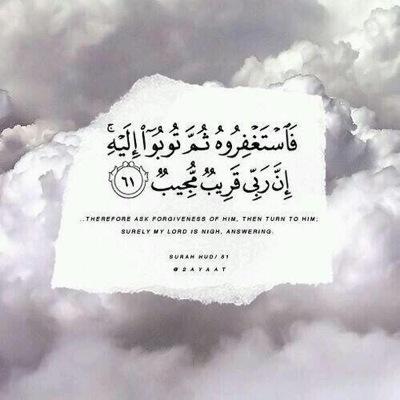 فَٱسْتَغْفِرُوهُ ثُمَّ تُوبُوٓا۟ إِلَيْهِ ۚ
إِنَّ رَبِّى قَرِيبٌ مُّجِيبٌ ٦١
..THEREFORE ASK FORGIVENESS OF HIM, THEN TURN TO HIM;
SURELY MY LORD IS NIGH, ANSWERING.
SURAH HUD/ 61
@2AYAAT